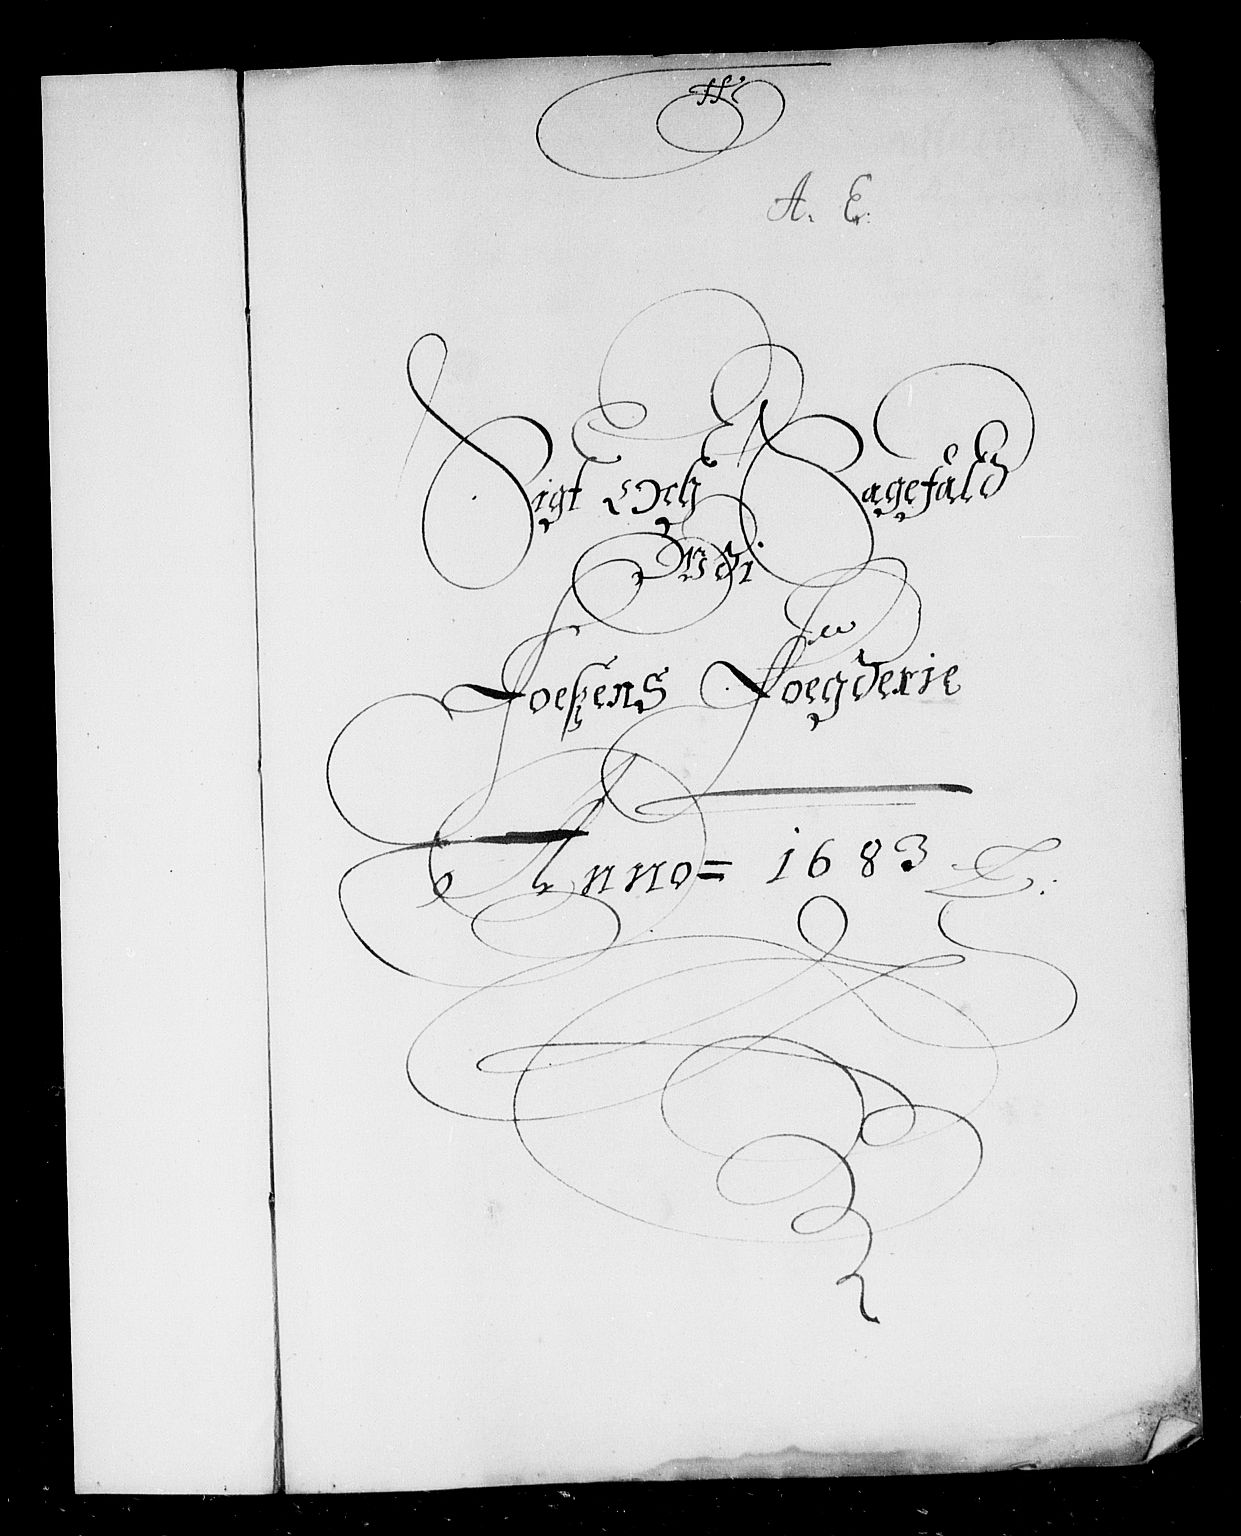 A. E.
Sigt Och Sagefald
Udi
Foeßens Foegderie
Anno= 1683